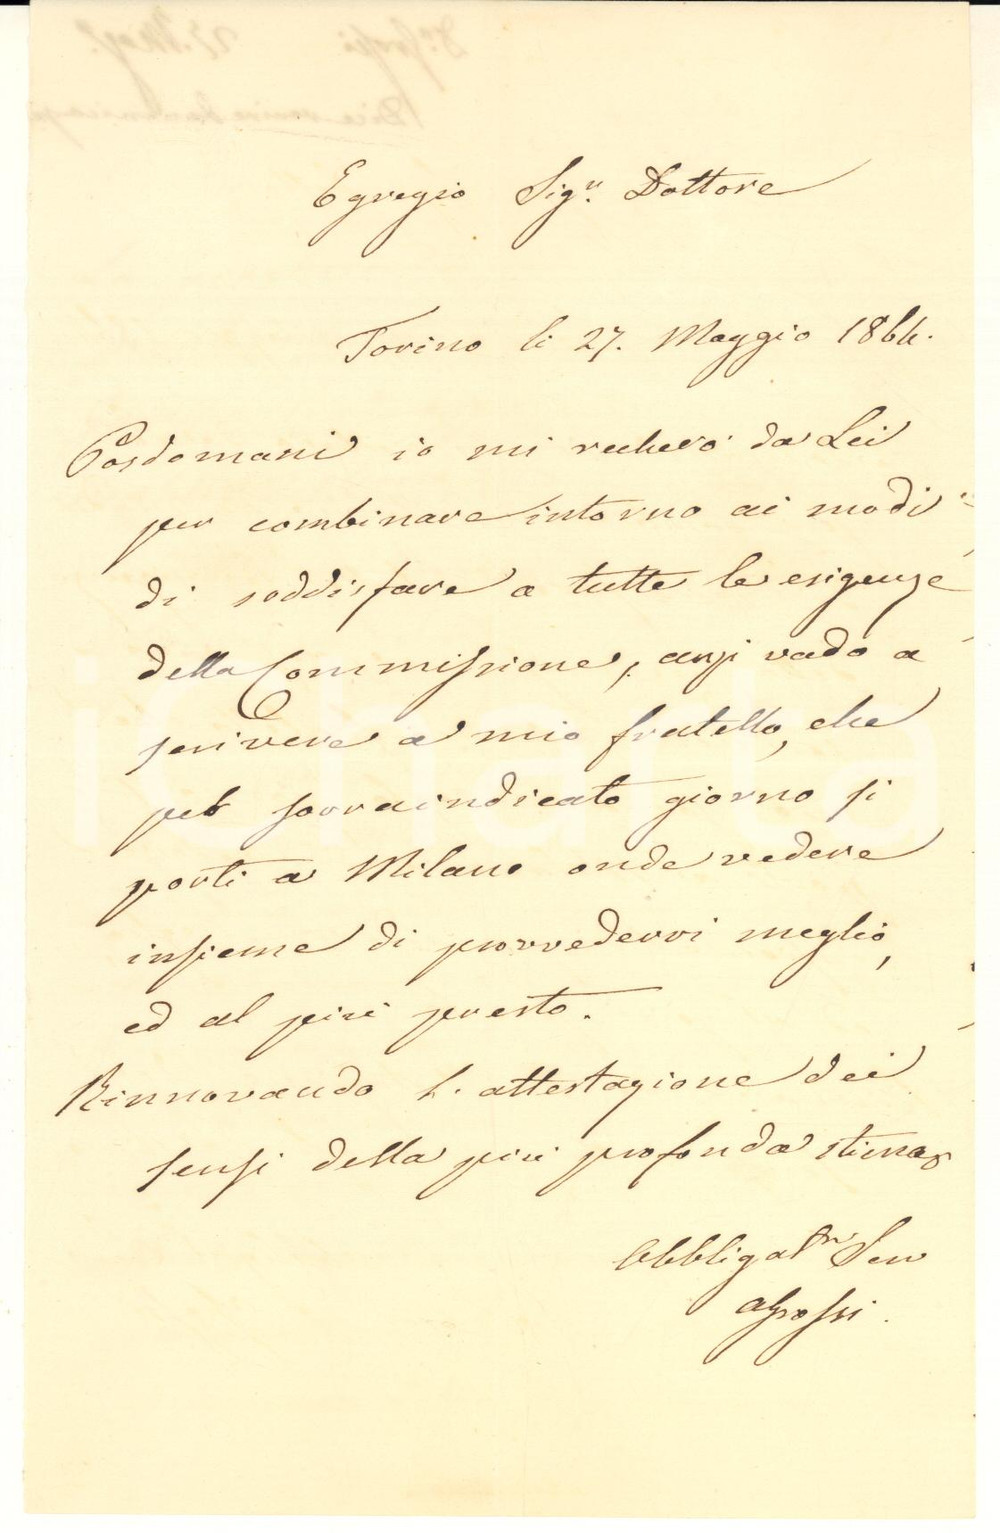 Egregio Sig.r Dottore
Torino li 27. Maggio 1864.
Posdomani io mi recherò da Lei
per combinare intorno ai modi
di soddisfare a tutte le esigenze
della Commissione, anzi vado a
scrivere a mio fratello, che
pel sovraindicato giorno si
porti a Milano onde vedere
insieme di provvedervi meglio,
ed al più presto.
Rinnovando l'attestazione dei
sensi della più profonda stima
Obbligat.mo Serv
Grossi.